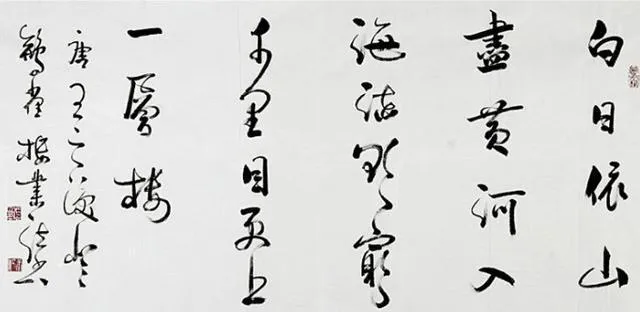 白日依山
盡黄河入
海流欲窮
千里目更上
一層樓
唐王之渙登
鸛雀樓業